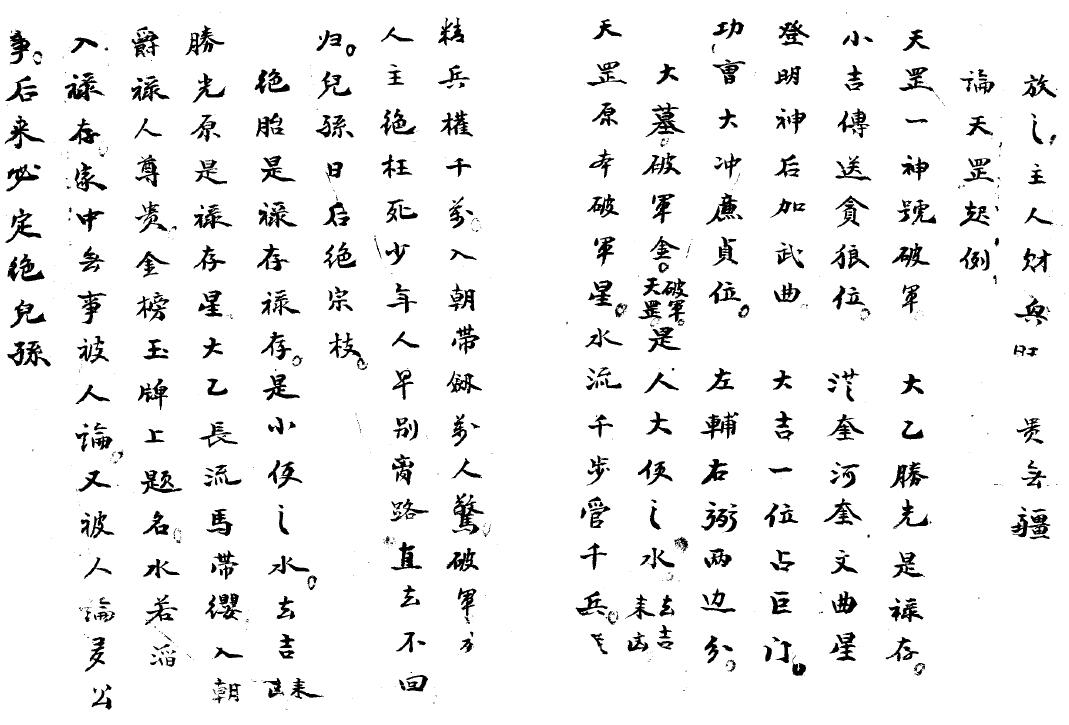 放之主人財興旺 貴無疆
論天罡起例
天罡一神號破軍 大乙勝光是祿存
小吉傳送貪狼位 奎河奎文曲星
登明神后加武曲 大吉一位占巨门
功曹大冲廉貞位 左輔右弼两边分
大墓破軍金天罡破軍是人大便之水去吉来凶
天罡原本破軍星水流千步管千兵
精兵權千萬入朝带劔萬人驚破軍
人主絶枉死少年人早别离路直去不回
归兒孫日后絶宗枝
绝胎是禄存禄存是小便之水去吉来凶
勝光原是禄存星大乙長流馬帶纓入朝
爵禄人尊贵金榜玉牌上题名水若
入禄存家中無事被人論又被人論多公
事后来必定绝兒孫